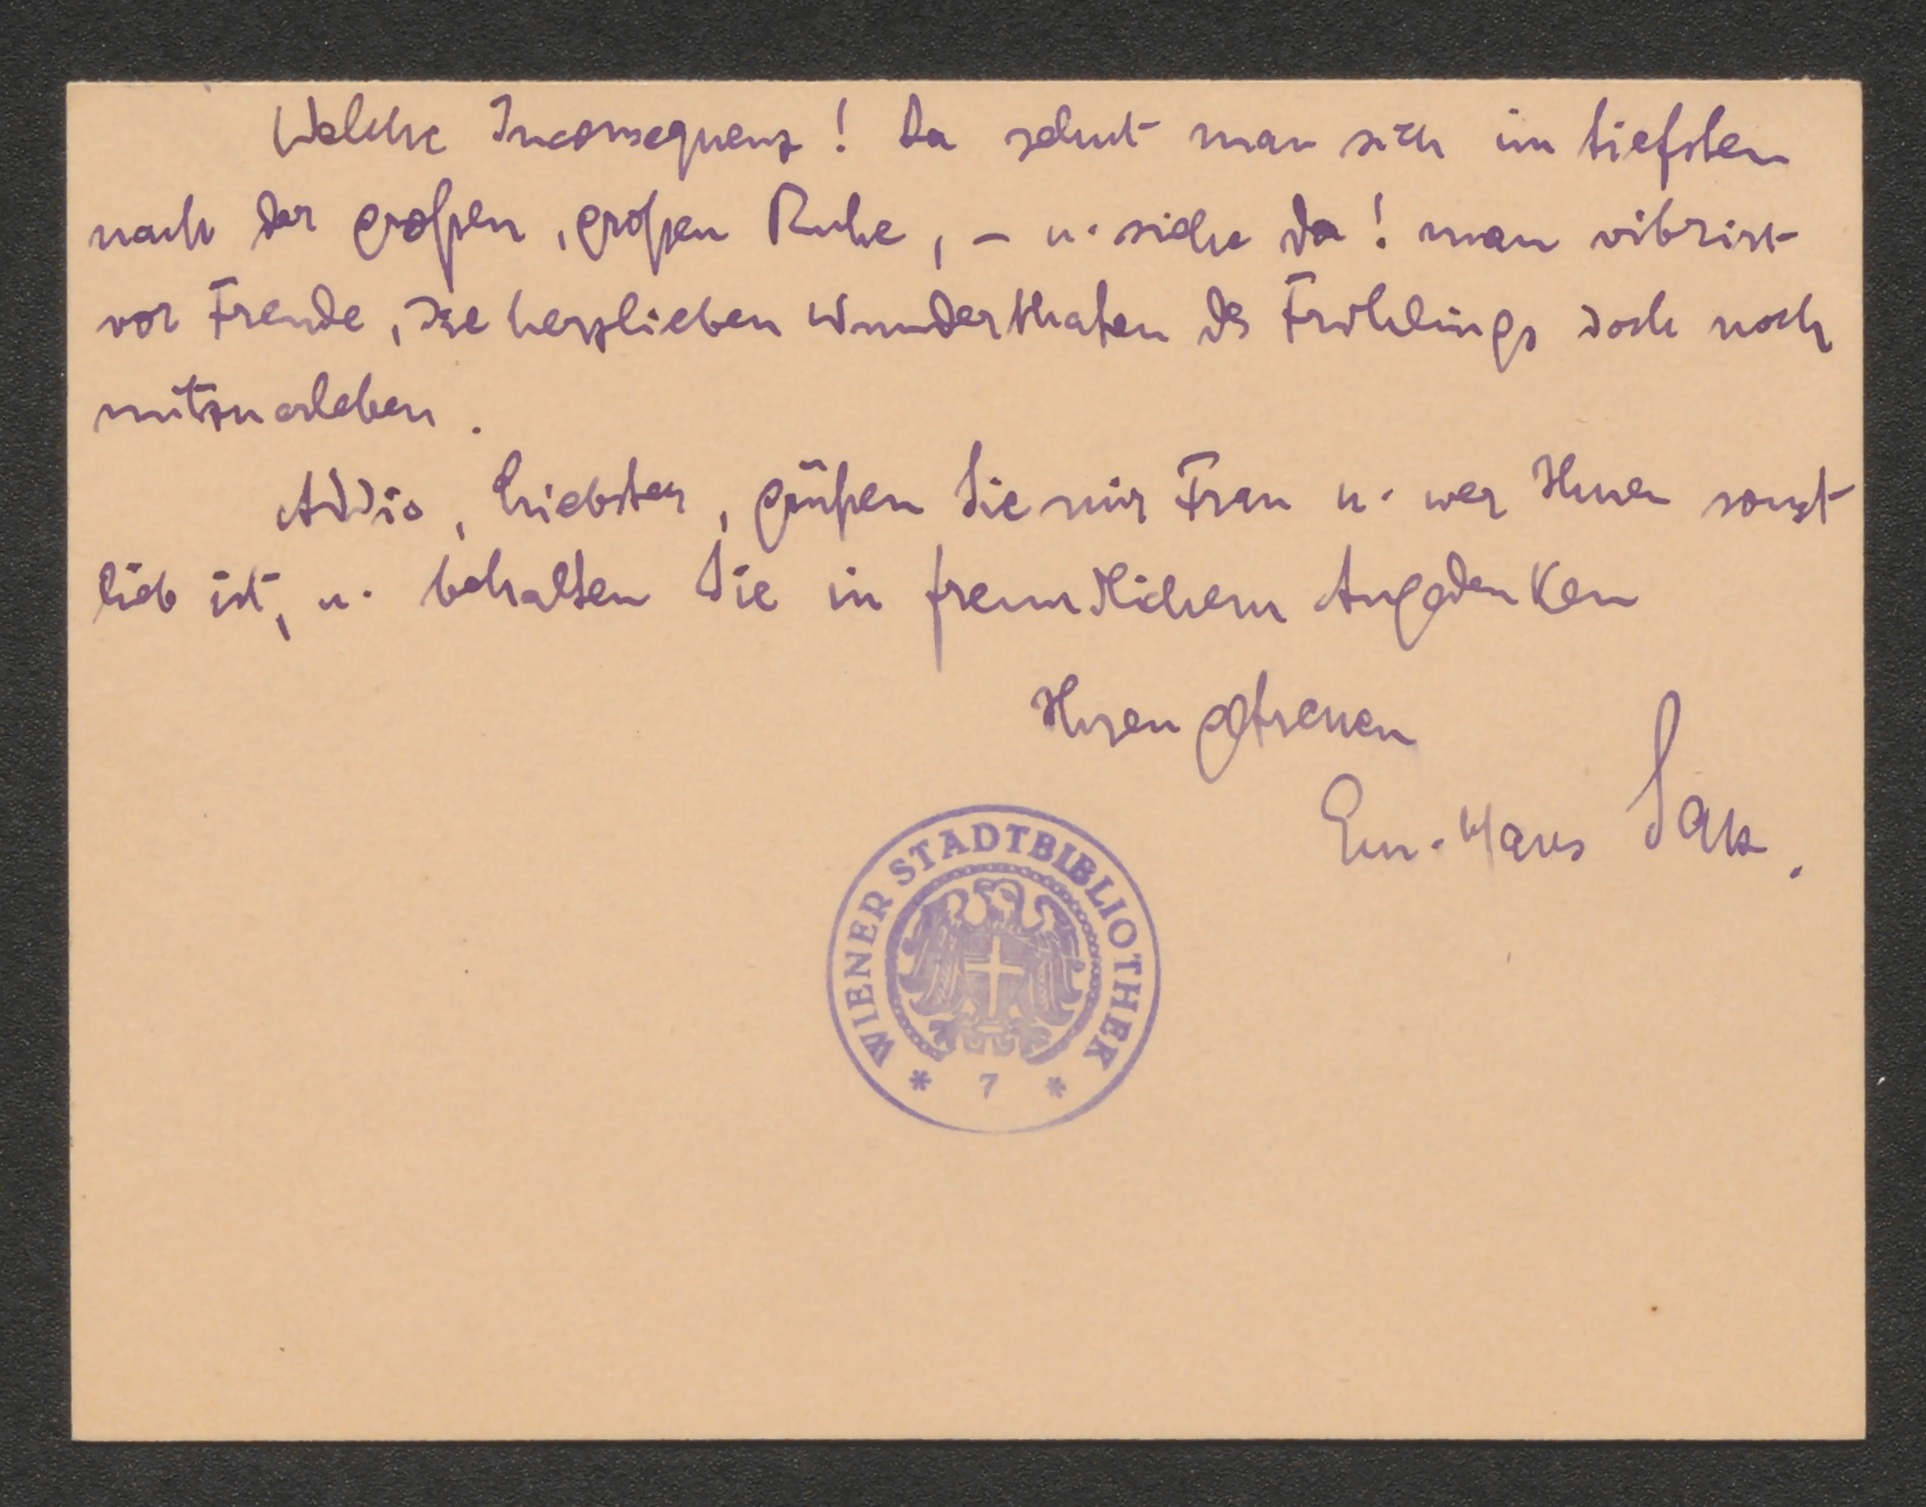 Welche Inconsequenz! Da sehnt man sich im tiefsten
nach der großen, großen Ruhe, – u. siehe da! man vibrirt
vor Freude, die herzlieben Wunderthaten des Frühlings doch noch
mitzuerleben.
Addio, Liebster, grüßen Sie mir Frau u. wer Ihnen sonst
lieb ist, u. behalten Sie in freundlichem Angedenken
Ihren getreuen
Em. Hans Sax.
WIENER STADTBIBLIOTHEK
* 7 *